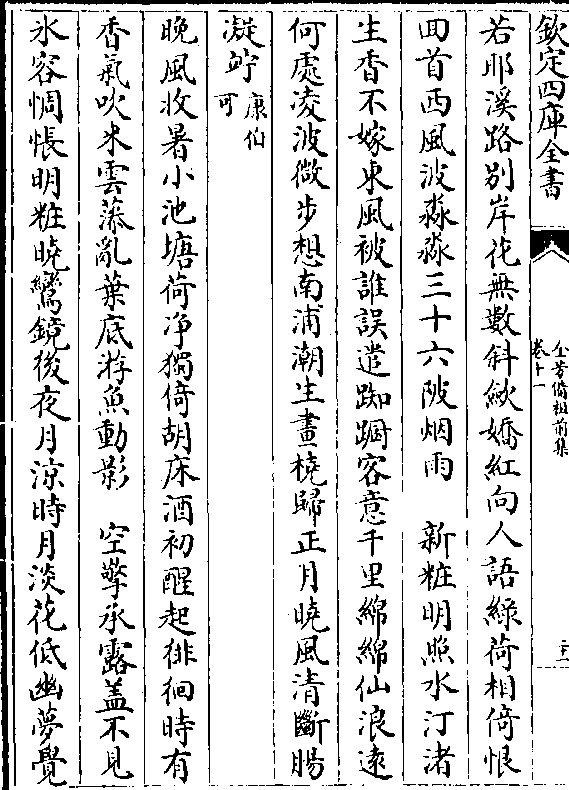 欽定四庫全書
全芳備祖前集
卷十一
若耶溪路別岸花無數斜斂嬌紅向人語綠荷相倚恨
回首西風波淼淼三十六陂烟雨　新粧明照水汀渚
生香不嫁東風被誰誤遣踟蹰客意千里綿綿仙浪遠
何處凌波微步想南浦潮生畫橈歸正月曉風清斷腸
凝竚康伯可
晚風收暑小池塘荷净獨倚胡床酒初醒起徘徊時有
香氣吹来雲藻亂葉底游魚動影　空擎承露盖不見
氷容惆悵明粧曉鸞鏡後夜月涼時月淡花低幽夢覺